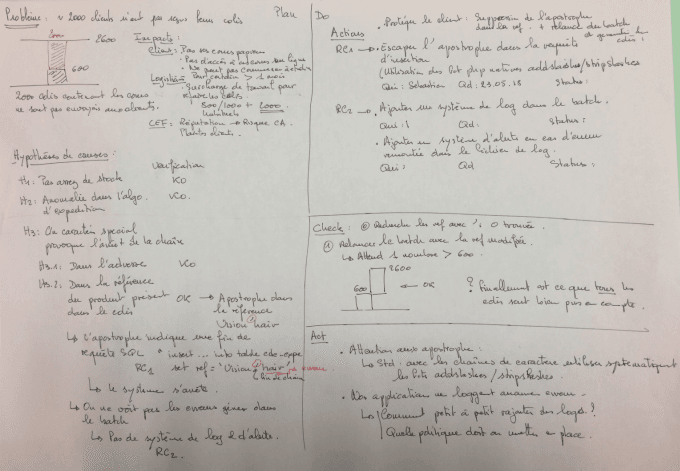 Problème : ≈ 2000 clients n'ont pas reçu leurs colis
Plan
2600
600
2000 colis contenant les cours
ne sont pas envoyés aux clients.
Impacts :
Client : Pas ses cours papiers
• Pas d'accès à
• Ne peut pas commencer
Logistique
> 1 mois
• Surcharge de travail pour
les colis
500/1000 + 2000
habituels
CEF : Réputation → Risque CA
Plaintes clients.
Hypothèses de causes :
Vérification
H1 : Pas assez de stock KO
H2 : Anomalie dans l'algo. KO.
d'expédition
H3 : Un caractère spécial
provoque l'arrêt de la chaîne
H3.1 : Dans l'adresse KO
H3.2 : Dans la référence
du produit présent OK → Apostrophe dans
dans le colis la référence
Vision'hair
↳ L'apostrophe indique une fin de
requête SQL " insert ... into table
RC1 set ref = 'Vision'hair'
↳ le système s'arrête.
↳ On ne voit pas les erreurs dans
le batch
↳ Pas de système de log & d'alerte.
RC2.
Do
• Protéger le client : Suppression de l'apostrophe
dans la ref. & relance du batch
Actions
RC1 → Escaper l'apostrophe dans la requête
d'insertion
(Utilisation des fct php natives addslashes/stripslashes
Qui : Sébastien Qd : 29.05.18 Status :
RC2 → • Ajouter un système de log dans le batch.
Qui : Qd : Status :
• Ajouter un système d'alerte en cas d'erreur
remontée dans le fichier de log.
Qui : Qd Status :
Check : ⓪ Recherche les ref avec ' : 0 trouvée.
① Relancer le batch avec la ref modifiée.
↳ Attend 1 nombre > 600.
2600
600
← OK
? Finalement est ce que tous les
colis sont bien pris en compte.
Act
• Attention aux apostrophe :
↳ Std : avec les chaînes de caractère utiliser systématiquement
les fcts addslashes/stripslashes.
• Nos application ne loggent aucune erreur.
↳ Comment petit à petit rajouter des logs ?
Quelle politique doit on mettre en place.